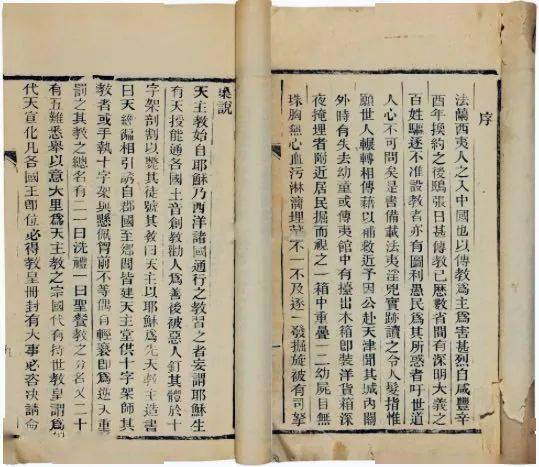 序
法蘭西夷人之入中國也以傳教爲主爲害甚烈自咸豐辛
酉年換約之後鴟張日甚傳教已歷數省間有深明大義之
百姓驅逐不准設教者亦有圖利愚民爲其所惑者吁世道
人心不可問矣是書備載法夷淫兇實跡讀之令人髮指惟
願世人輾轉相傳藉以補救近予因公赴天津聞其城內關
外時有失去幼童或傳夷館中有擡出木箱卽裝洋貨箱深
夜掩埋者附近居民掘而視之一箱中重疊一二幼屍目無
珠胸無心血污淋漓埋 不一不及逐一發掘旋被有司拏
集說
天主教始自耶穌乃西洋諸國通行之教習之者妄謂耶穌生
有天授能通各國土音創教勸人爲善後被惡人釘其體於十
字架剖割以斃其徒號其教曰天主以耶穌爲先天教主造書
曰天經徧相引誘自郡國至鄉閭皆建天主堂供十字架師其
教者或手執十字架與懸佩胷前不等偶有輕褻卽爲逆天重
罰之其教之總名有二一曰洗禮一曰聖餐教之分名又二十
有五難悉舉以意大里爲天主教之宗國代有持世教皇謂爲
代天宣化凡各國王卽位必得教皇冊封有大事必咨決請命